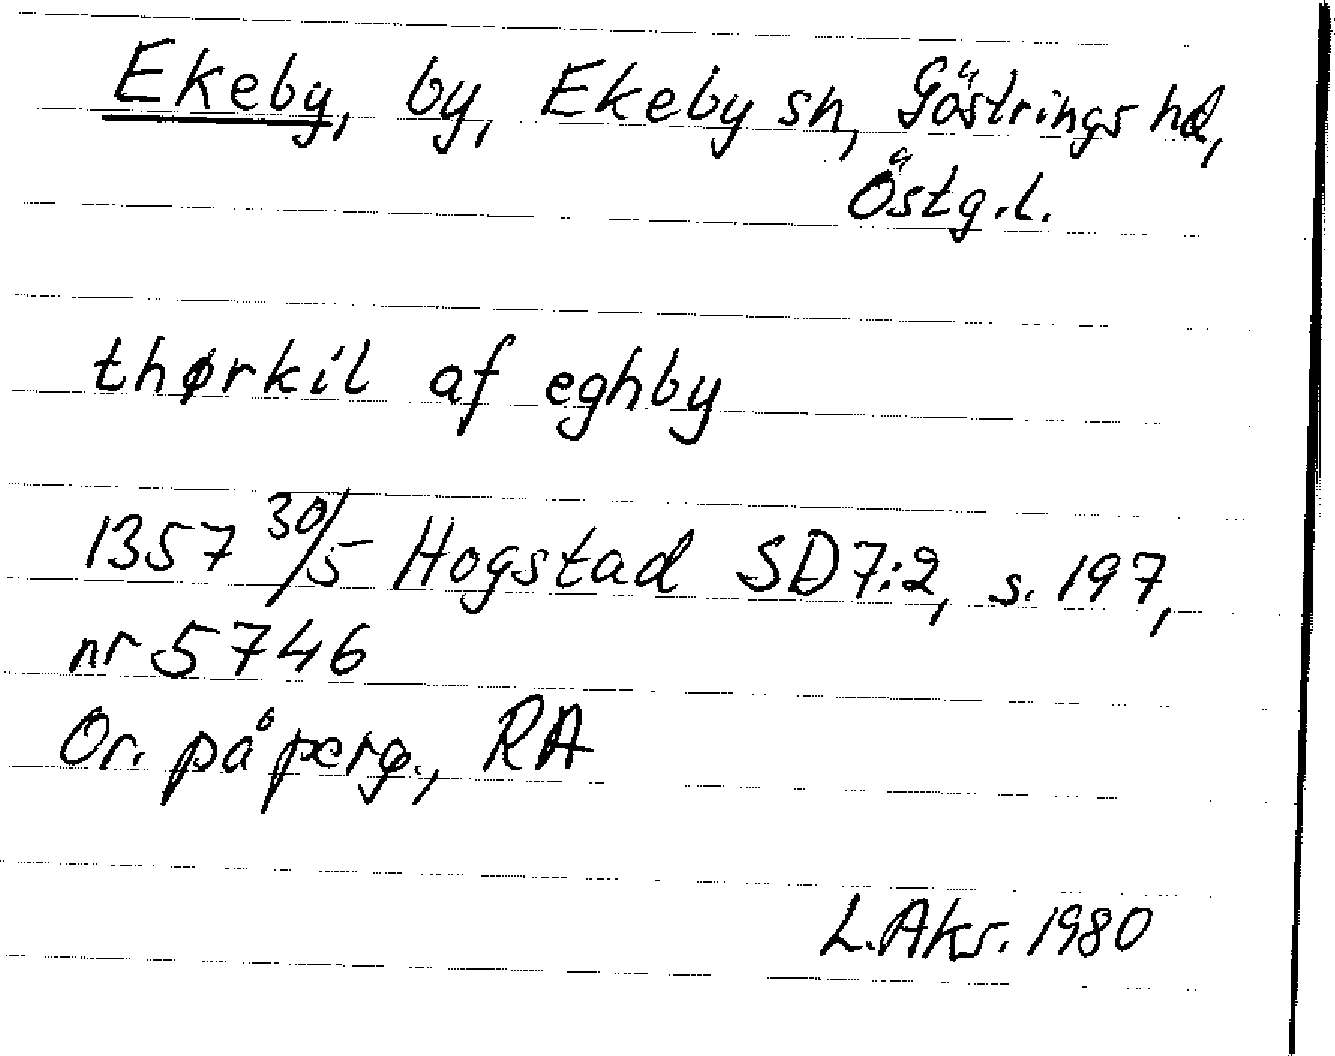 Ekeby, by, Ekeby sn, Göstrings hd,
Östg.l.
thørkil af eghby
1357 30/5 Hogstad SD 7:2, s. 197,
nr 5746
Or. på perg., RA
L.Aks. 1980